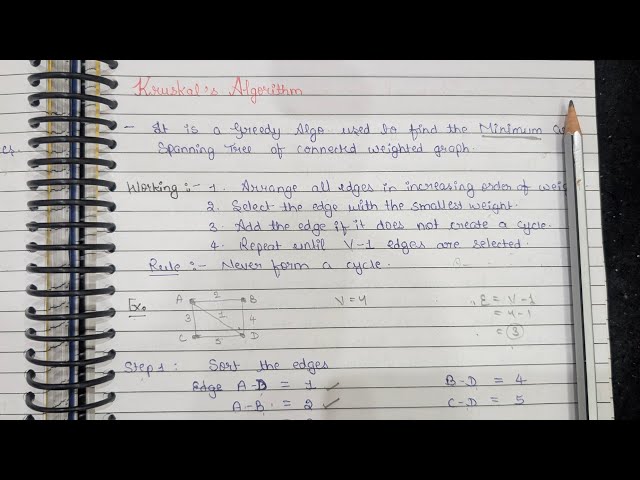 Kruskal's Algorithm
- It is a Greedy Algo used to find the Minimum
Spanning Tree of connected weighted graph.
Working :- 1. Arrange all edges in increasing order of weig
2. Select the edge with the smallest weight.
3. Add the edge if it does not create a cycle.
4. Repeat until V-1 edges are selected.
Rule :- Never form a cycle.
Ex.
A 2 B
3 1 4
C 5 D
V = 4
E = V-1
= 4-1
= 3
Step 1 : Sort the edges
Edge A-D = 1 ✓ B-D = 4
A-B = 2 ✓ C-D = 5